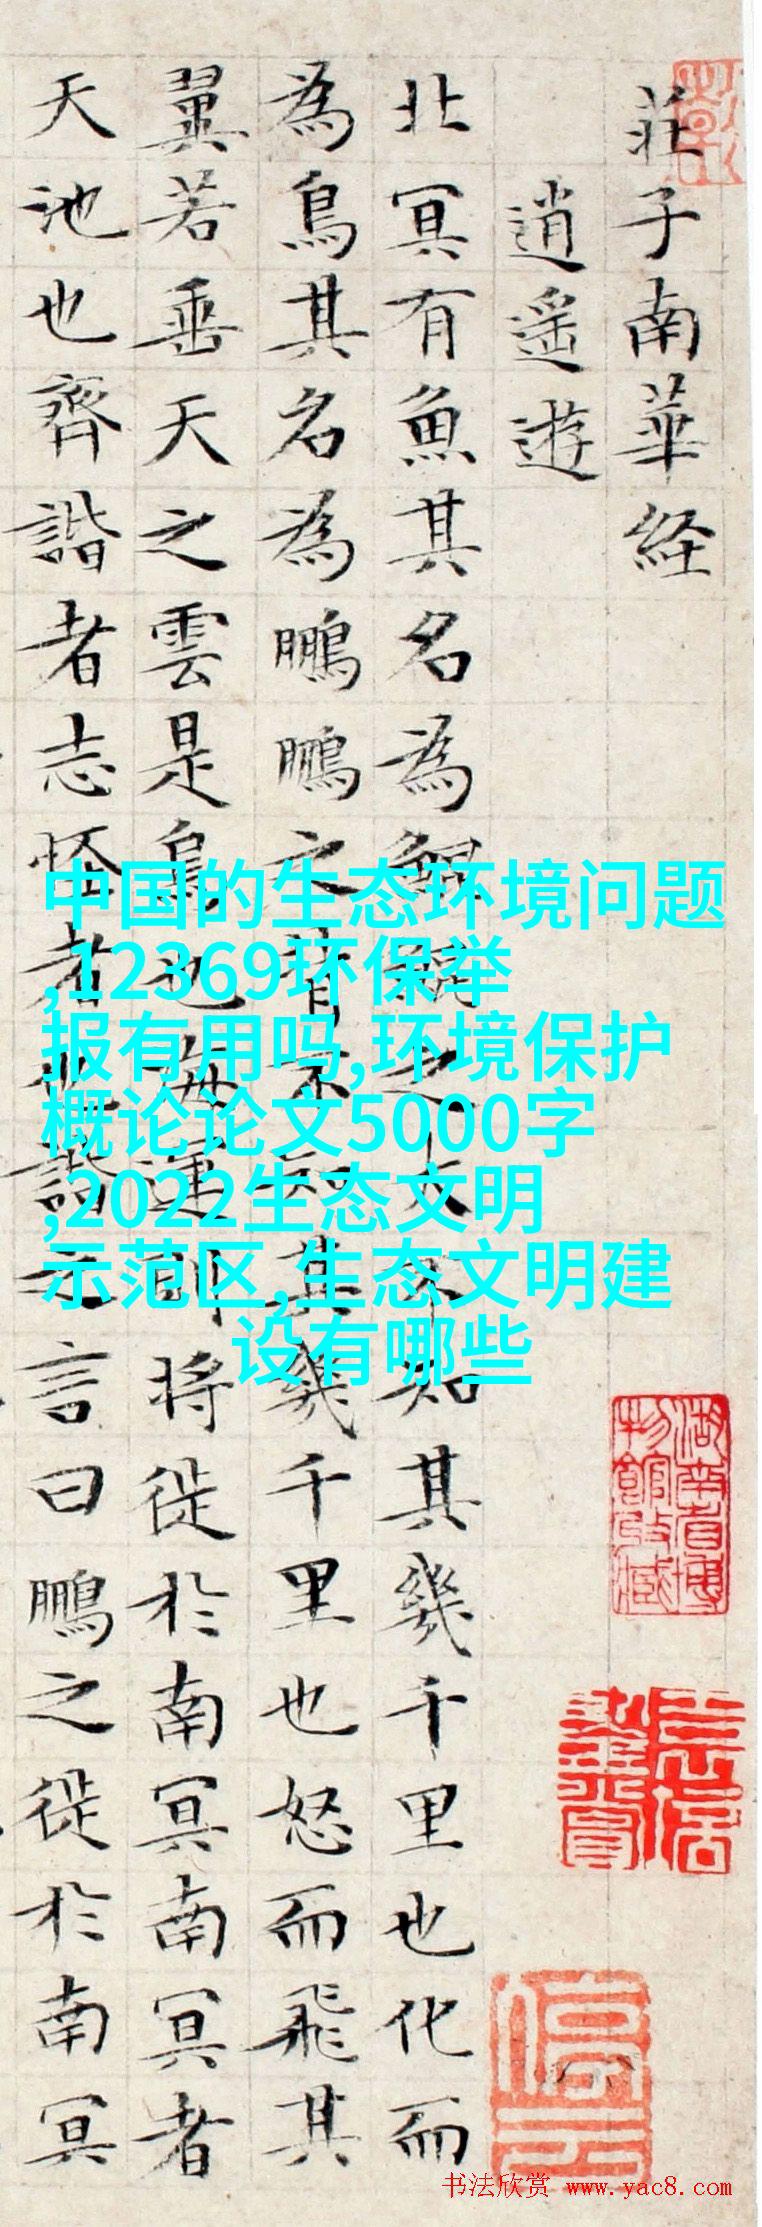 莊子南華経
逍遥遊
北冥有魚其名為鯤鯤之大不知其幾千里也化而
為鳥其名為鵬鵬之背不知其幾千里也怒而飛其
翼若垂天之雲是鳥也海運則將徙於南冥南冥者
天池也齊諧者志怪者也諧之言曰鵬之徙於南冥
中国的生态环境问题
,12369环保举
报有用吗,环境保护
概论论文5000字
,2022生态文明
示范区,生态文明建
设有哪些
湖南省博物館收藏
书法欣赏 www.yac8.com